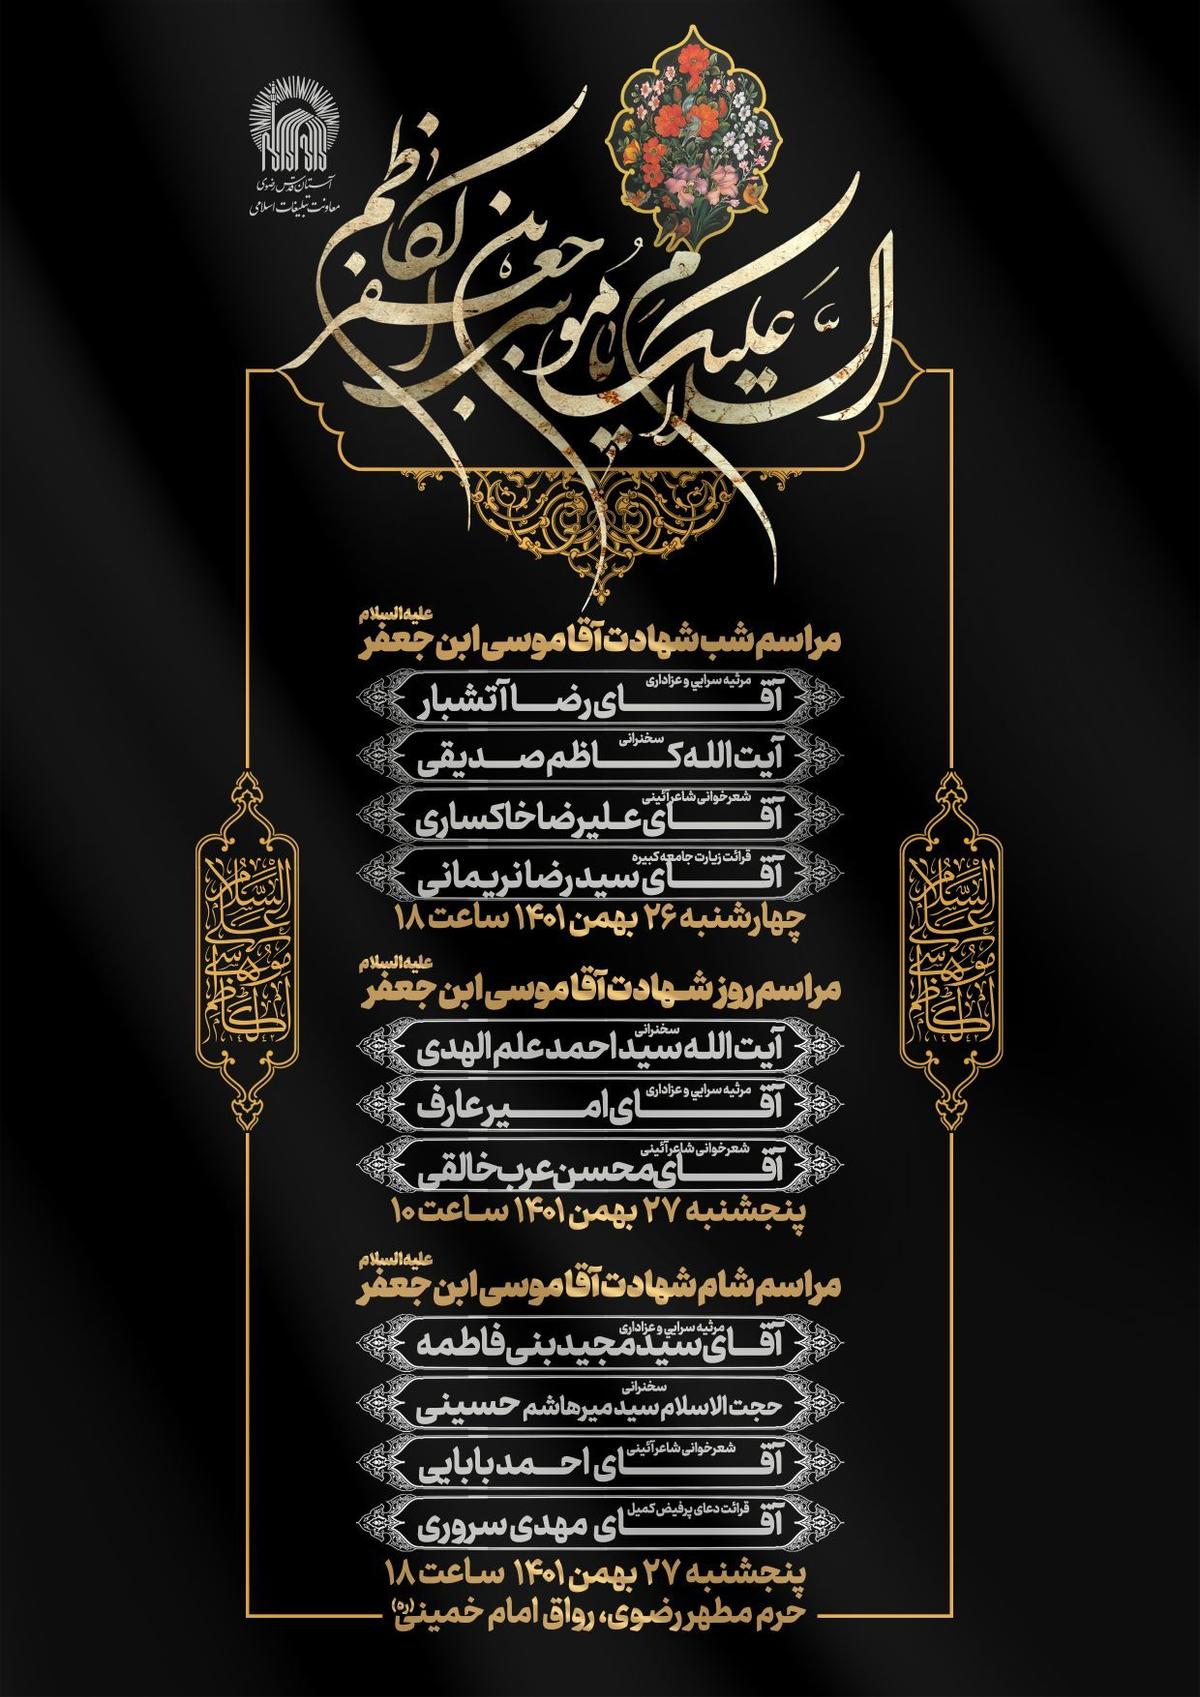 آستان قدس رضوی
معاونت تبلیغات اسلامی
السلام علیک یا موسی بن جعفر الکاظم
علیه السلام
مراسم شب شهادت آقا موسی ابن جعفر
مرثیه سرایی و عزاداری
آقای رضا آتشبار
سخنرانی
آیت الله کاظم صدیقی
شعرخوانی شاعر آئینی
آقای علیرضا خاکساری
قرائت زیارت جامعه کبیره
آقای سیدرضا نریمانی
چهارشنبه ۲۶ بهمن ۱۴۰۱ ساعت ۱۸
علیه السلام
مراسم روز شهادت آقا موسی ابن جعفر
سخنرانی
آیت الله سید احمد علم الهدی
مرثیه سرایی و عزاداری
آقای امیر عارف
شعرخوانی شاعر آئینی
آقای محسن عرب خالقی
پنجشنبه ۲۷ بهمن ۱۴۰۱ ساعت ۱۰
علیه السلام
مراسم شام شهادت آقا موسی ابن جعفر
مرثیه سرایی و عزاداری
آقای سید مجید بنی فاطمه
سخنرانی
حجت الاسلام سید میرهاشم حسینی
شعرخوانی شاعر آئینی
آقای احمد بابایی
قرائت دعای پرفیض کمیل
آقای مهدی سروری
پنجشنبه ۲۷ بهمن ۱۴۰۱ ساعت ۱۸
حرم مطهر رضوی، رواق امام خمینی (ره)
السلام علی موسی الکاظم
۱۴۴۲
السلام علی موسی الکاظم
۱۴۴۲